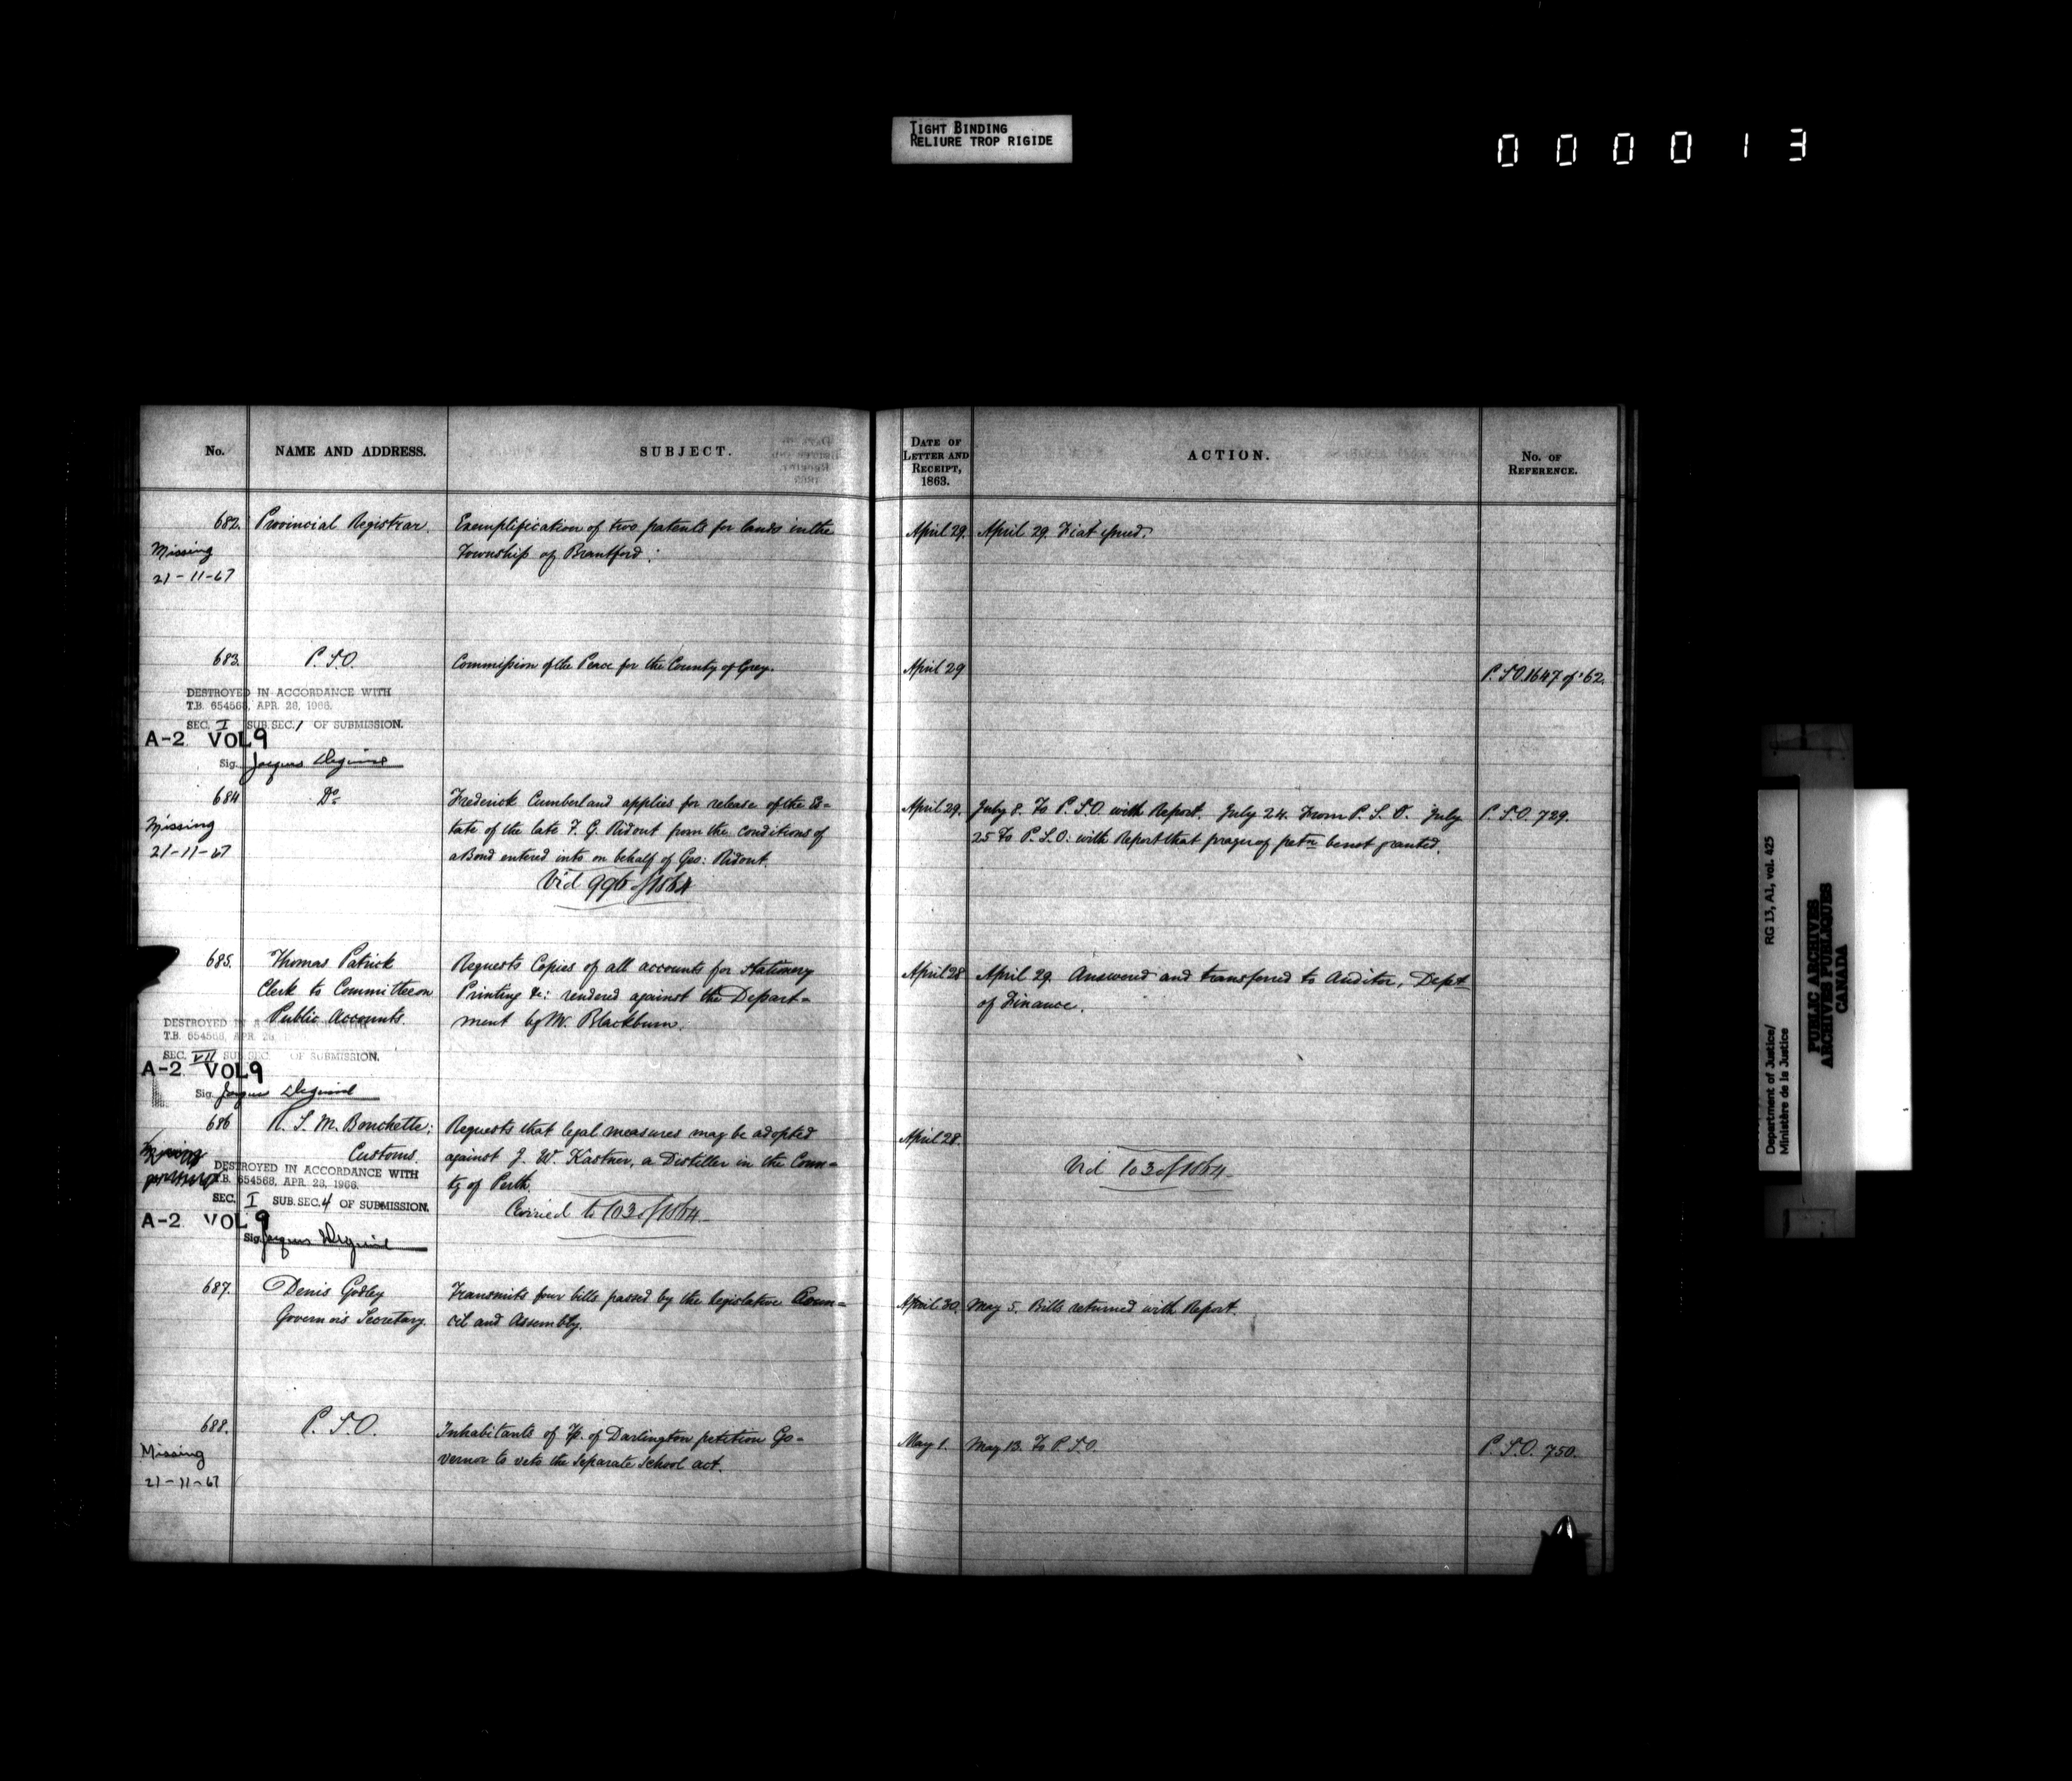 TIGHT BINDING
RELIURE TROP RIGIDE
000013
No.
NAME AND ADDRESS.
SUBJECT.
DATE OF
LETTER AND
RECEIPT,
1863.
ACTION.
No. OF
REFERENCE.
682. Provincial Registrar. Exemplification of two patents for lands in the April 29. April 29. Fiat issued.
Missing Township of Brantford.
21-11-67
683. P. S. O. Commission of the Peace for the County of Grey. April 29 P. S. O. 1647 of '62.
DESTROYED IN ACCORDANCE WITH
T.B. 654568, APR. 28, 1966.
SEC. I SUB.SEC. 1 OF SUBMISSION.
A-2 VOL 9
Sig. Jacques
684 Do Frederick Cumberland applies for release of the Es- April 29. July 8. To P. S. O. with Report. July 24. From P. S. O. July P. S. O. 729.
Missing tate of the late T. G. Ridout from the conditions of 25 To P. S. O: with Report that prayer of petn be not granted.
21-11-67 a Bond entered into on behalf of Geo: Ridout.
Vid 996 of 1864
685. Thomas Patrick Requests Copies of all accounts for Stationery April 28 April 29. Answered and transferred to Auditor, Dept
Clerk to Committee on Printing &c: rendered against the Depart- of Finance.
Public Accounts. ment by W. Blackburn.
DESTROYED IN A
T.B. 654568, APR. 28,
SEC. VII SUB.SEC. OF SUBMISSION.
A-2 VOL 9
Sig. Jacques
686 R. S. M. Bouchette: Requests that legal measures may be adopted April 28.
Customs. against J. W. Kastner, a Distiller in the Coun- Vid 103 of 1864
DESTROYED IN ACCORDANCE WITH
T.B. 654568, APR. 28, 1966.
ty of Perth
SEC. I SUB.SEC. 4 OF SUBMISSION.
Carried to 103 of 1864
A-2 VOL 9
Sig. Jacques
687. Denis Godley Transmits four bills passed by the Legislative Coun- April 30. May 5. Bills returned with Report.
Governor's Secretary. cil and Assembly.
688. P. S. O. Inhabitants of Tp. of Darlington petition Go- May 1. May 13. To P. S. O. P. S. O. 750.
Missing vernor to veto the Separate School act.
21-11-67
Department of Justice/ RG 13, A1, vol. 425
Ministère de la Justice
PUBLIC ARCHIVES
ARCHIVES PUBLIQUES
CANADA